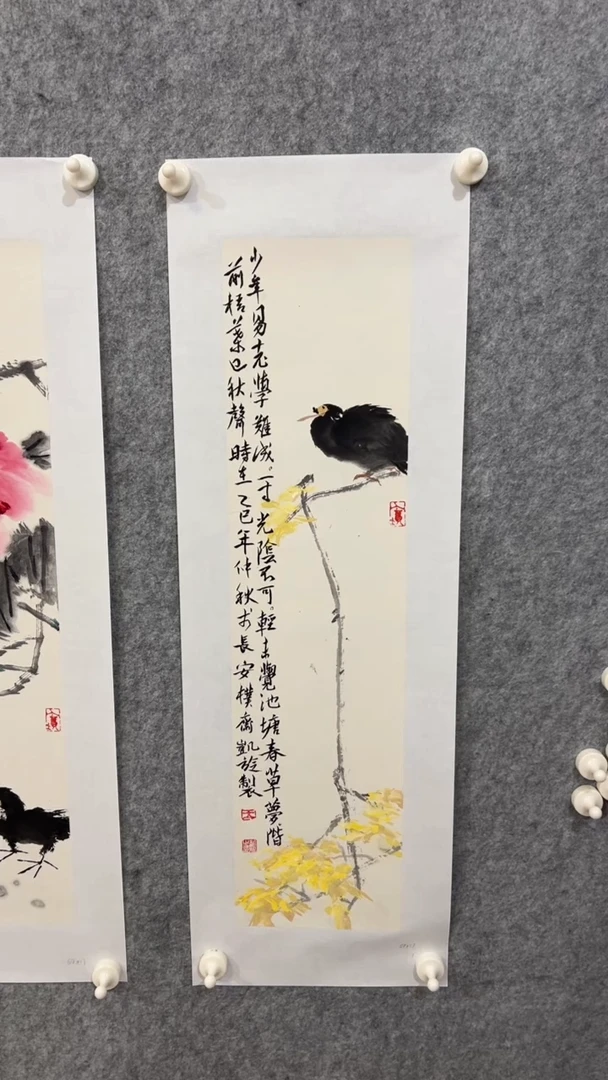 少年易老學難成一寸光陰不可輕未覺池塘春草夢階
前梧葉已秋聲時在乙巳年仲秋于長安樸齋凱旋製